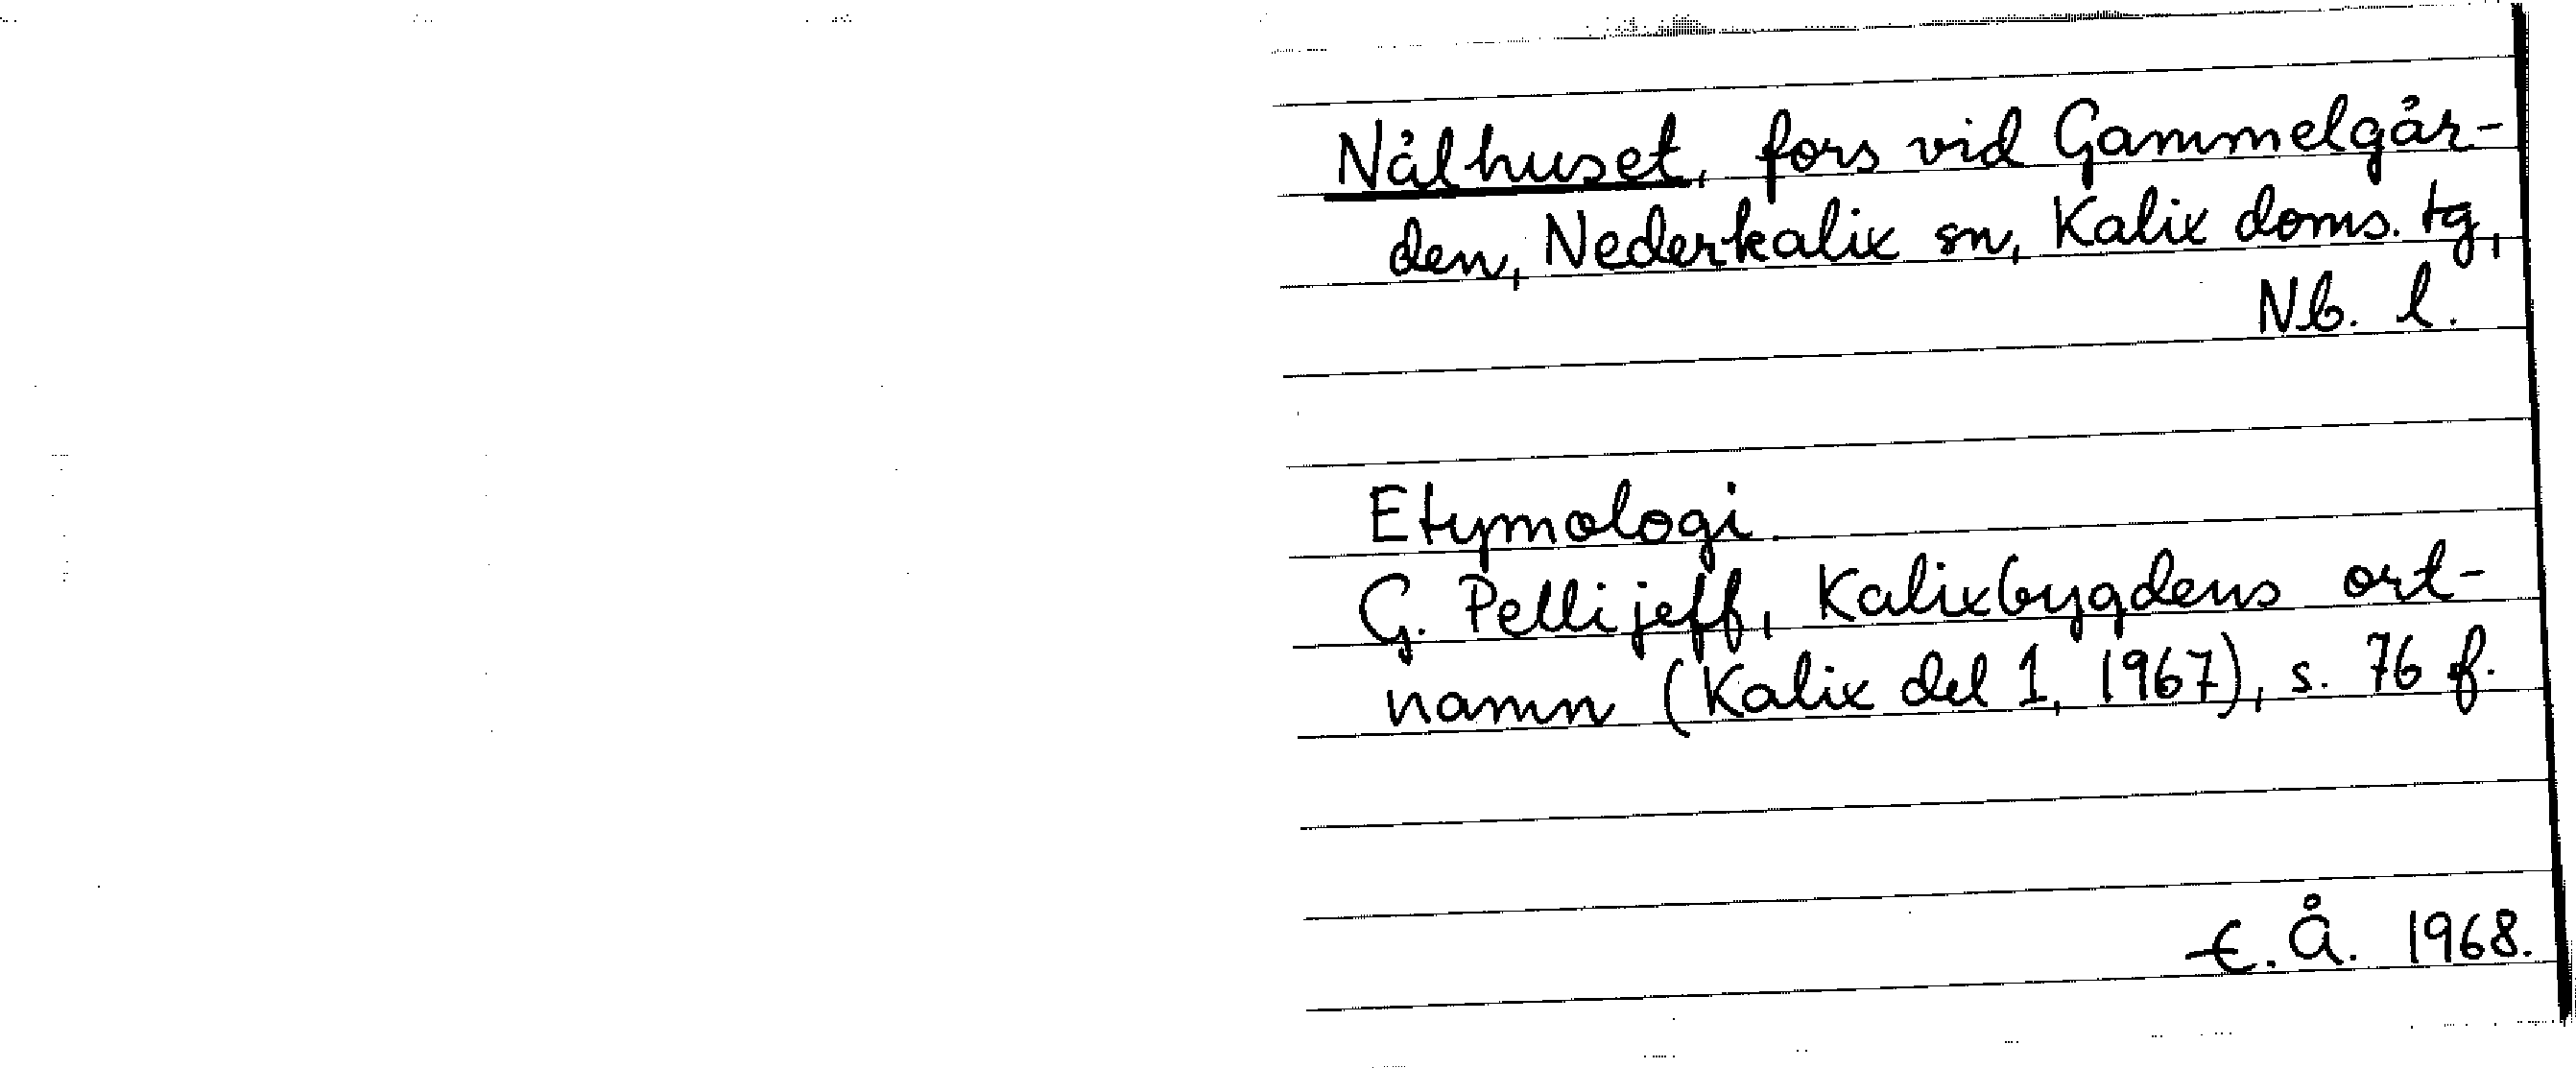 Nålhuset, fors vid Gammelgår-
den, Nederkalix sn, Kalix doms. tg,
Nb. l.
Etymologi.
G. Pellijeff, Kalixbygdens ort-
namn (Kalix del 1, 1967), s. 76 f.
E. Å. 1968.